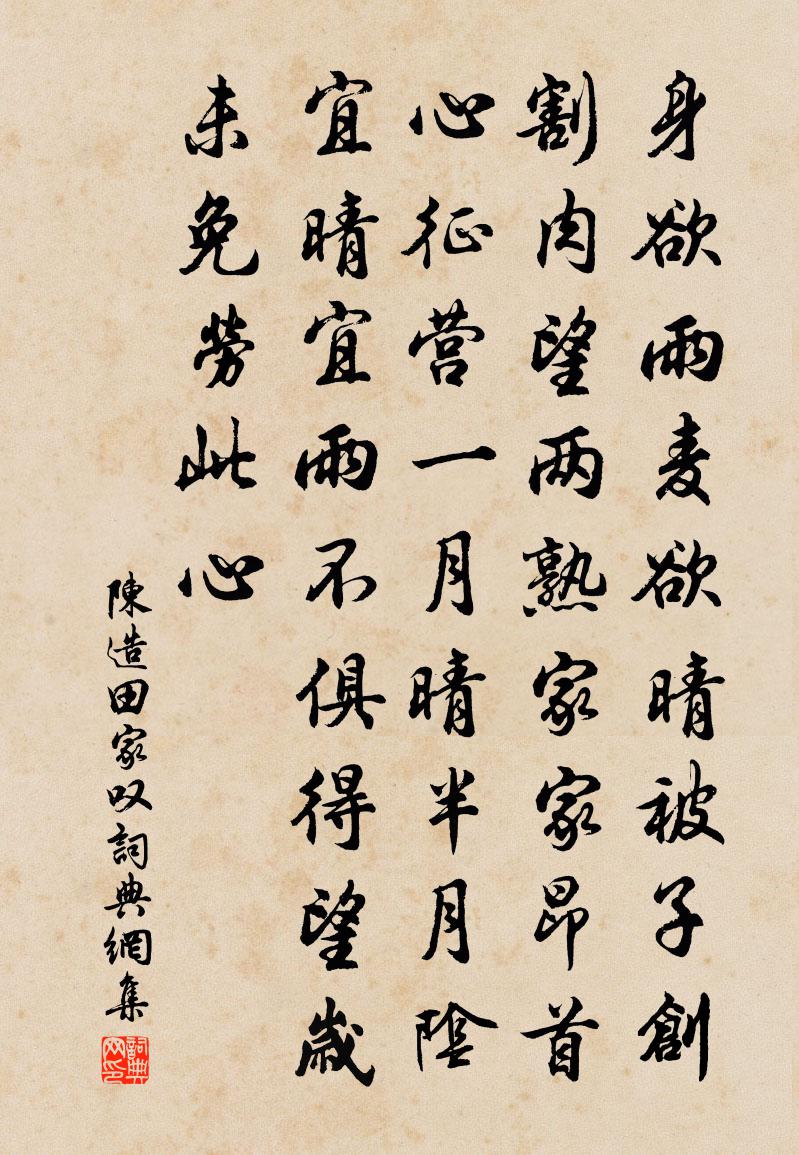 身欲雨麦欲晴被子創
割肉望两熟家家昂首
心征营一月晴半月陰
宜晴宜雨不俱得望歲
未免勞此心
陳造田家叹詞典網集
詞典网印